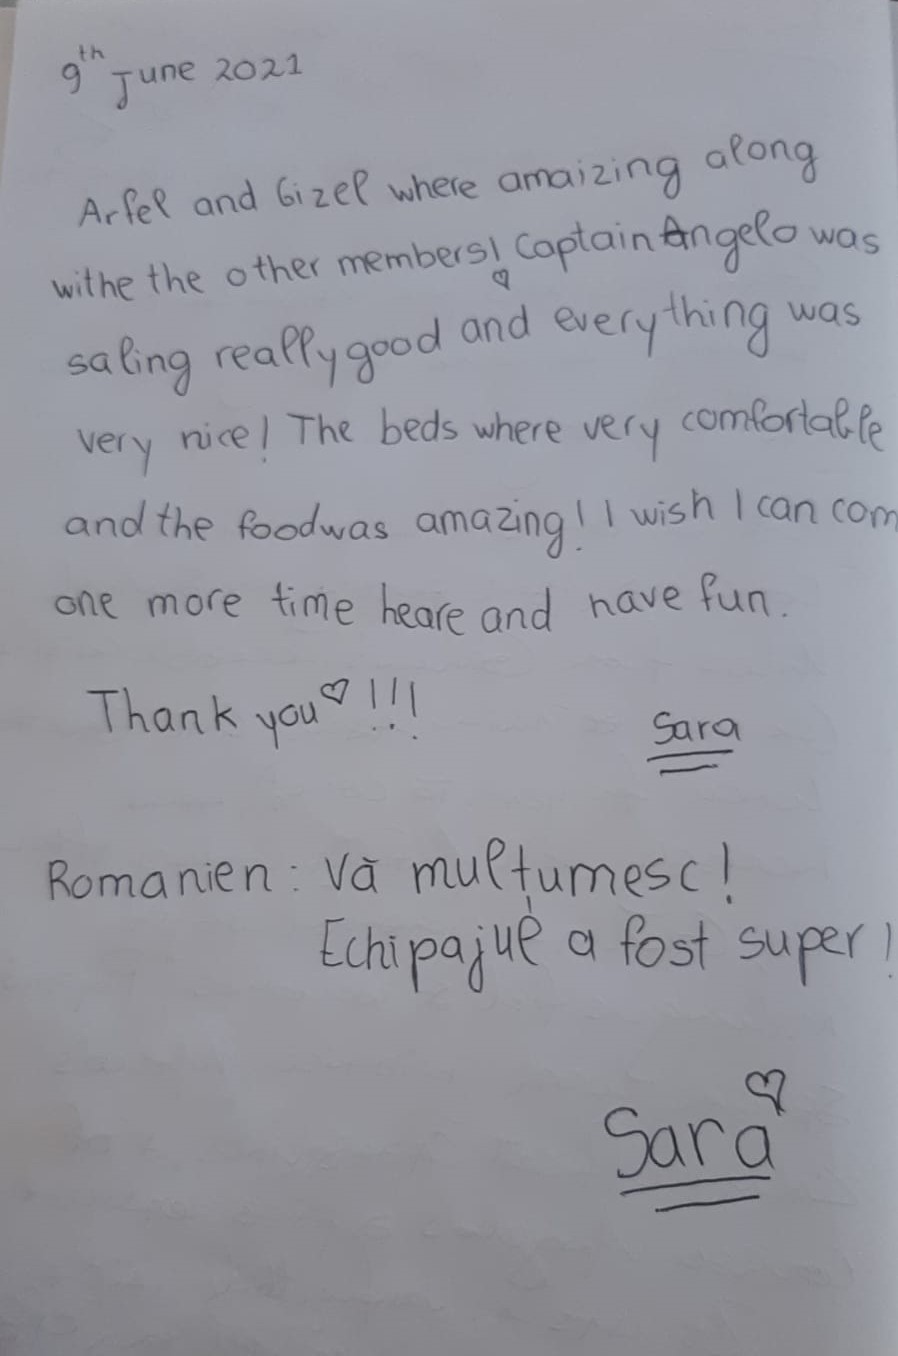 9th June 2021
Arfel and Gizel where amaizing along
withe the other members! Captain Angelo was
saling really good and everything was
very nice! The beds where very comfortable
and the food was amazing! I wish I can com
one more time heare and have fun.
Thank you ♡ !!!
Sara
Romanien: Vă mulțumesc!
Echipajul a fost super!
Sara ♡